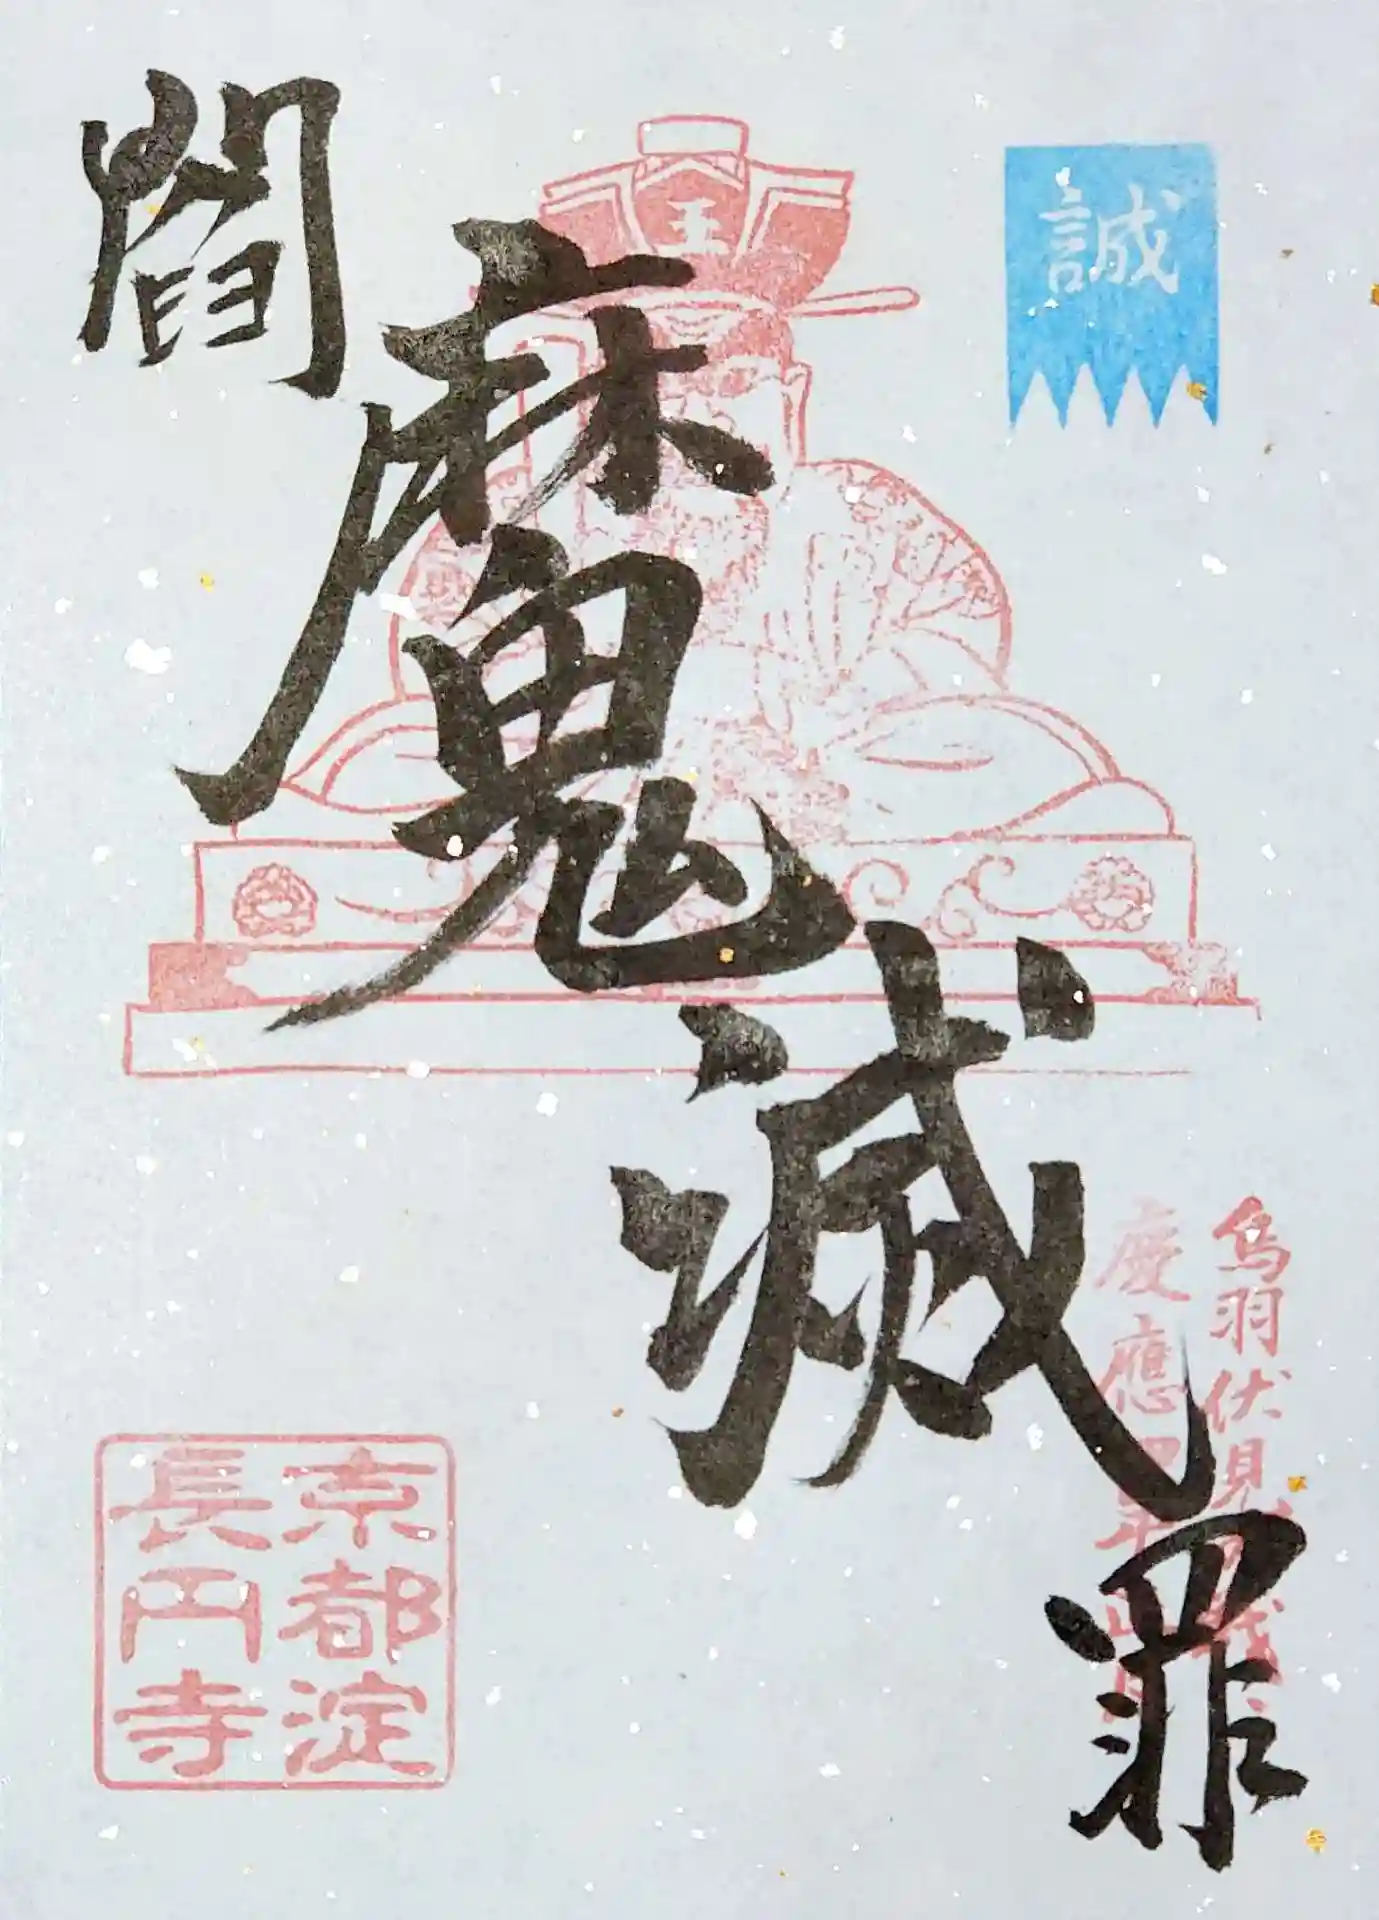 誠
閻魔滅罪
鳥羽伏見
慶應四年
京都淀
長円寺